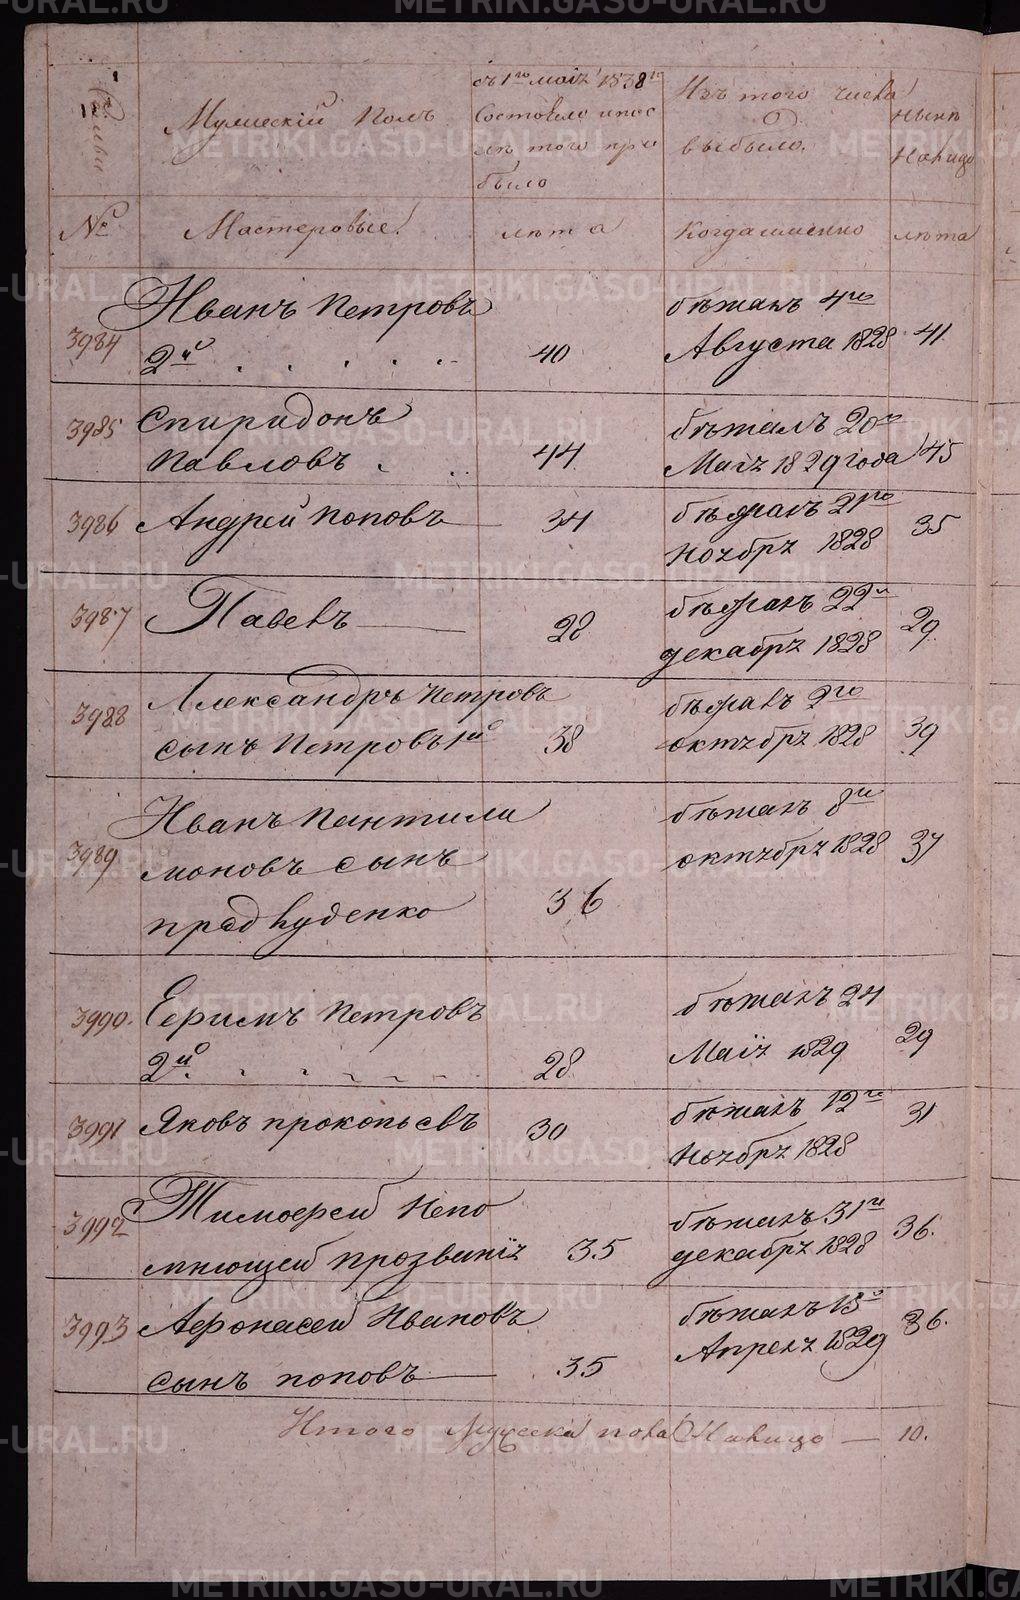 METRIKI.GASO-URAL.RU
Семьи
Мужескій Полъ
съ 1го маія 1838го
Состояло и пос
лѣ того при
было
Изъ того числа
выбыло.
Нынѣ
Налицо
№
Мастеровые
лѣта
Когда именно
лѣта
3984
Иванъ Петровъ
2й
40
бѣжалъ 4го
Августа 1828
41
3985
Спиридонъ
Павловъ
44
бѣжалъ 20го
Маія 1829 года
45
3986
Андрей Поповъ
34
бѣжалъ 21го
Ноября 1828
35
3987
Павелъ
28
бѣжалъ 22го
декабря 1828
29
3988
Александръ Петровъ
сынъ Петровъ 1й
38
бѣжалъ 2го
октября 1828
39
3989
Иванъ Пантили
моновъ сынъ
36
бѣжалъ 8го
октября 1828
37
3990.
Ефимъ Петровъ
2й
28
бѣжалъ 24
Маія 1829
29
3991
Яковъ прокопьевъ
30
бѣжалъ 12го
Ноября 1828
31
3992
Тимофей Непо
мнющей прозванія
35
бѣжалъ 31го
декабря 1828
36.
3993
Афонасей Ивановъ
сынъ поповъ
35
бѣжалъ 15го
Апреля 1829
36.
Итого Мужеска пола Налицо — 10.